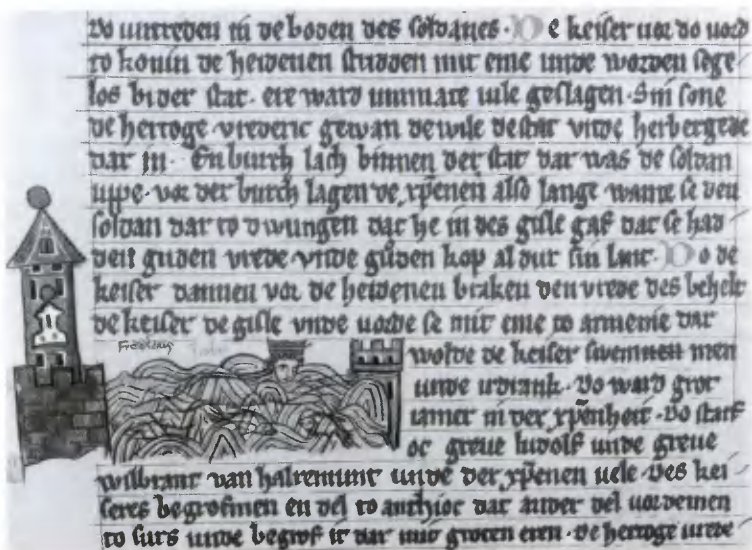 Do untreden in de boden des soldanes. De keiser vor do vord
to konin de heidenen studden mit eme unde worden sege
los bi der stat. ere ward unmate vile geslagen. Sin sone
de hertoge vrederic gewan de wile de stat unde herbergede
dar in. En burch lach binnen der stat dar was de soldan
uppe. vor der burch lagen de xpenen also lange wante se den
soldan dar to dwungen dat he in des gisle gaf dat se had
den guden vrede unde guden kop al dur sin lant. Do de
keiser dannen vor de heidenen braken den vrede des behelt
de keiser de gisle unde vorde se mit eme to armenie dar
wolde de keiser swemmen men
unde irdrank. Do ward grot
iamer in der xpenheit. Do starf
oc greve ludolf unde greve
wilbrant van halremunt unde der xpenen vele. Des kei
seres begrofmen en del to anthioc dat ander del vordemen
to surs unde begrof it dar mit groten eren. De hertoge vrede